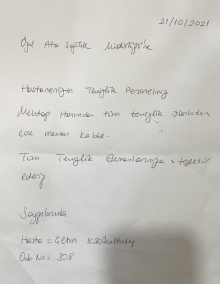 21/10/2021
Özel Ata Sağlık Müdürlüğü'ne
Hastanenizin Temizlik Personeliniz
Hanımdan tüm temizlik işlerinden
çok memnun kaldık.
Tüm Temizlik Elemanlarınıza teşekkür
ederiz.
Saygılarımla
Hasta =
Oda No = 308